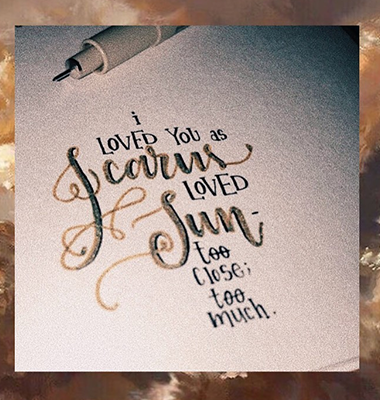 i
LOVED YOU as
Icarus
LOVED
Sun-
too
close;
too
much.